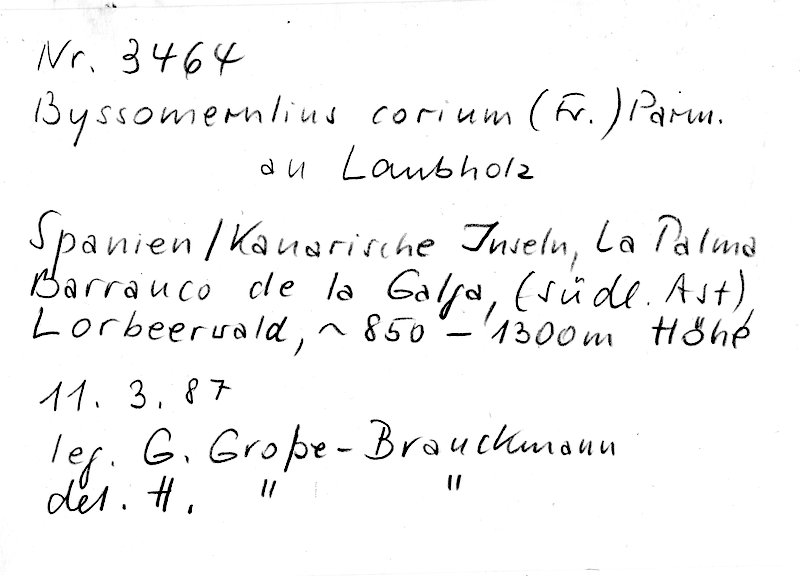 Nr. 3464
Byssomerulius corium (Fr.) Parm.
an Laubholz
Spanien/Kanarische Inseln, La Palma
Barranco de la Galga, (südl. Ast),
Lorbeerwald, ~ 850 – 1300m Höhe
11. 3. 87
leg. G. Große-Brauckmann
det. H. " "